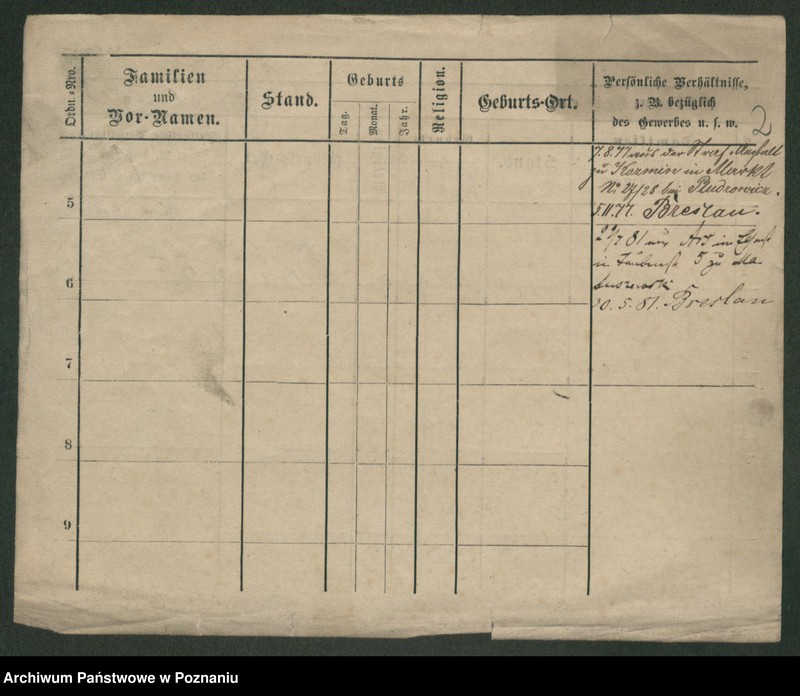 Ordn.-Nro.
Familien
und
Vor-Namen.
Stand.
Geburts
Tag.
Monat.
Jahr.
Religion.
Geburts-Ort.
Persönliche Verhältnisse,
z. B. bezüglich
des Gewerbes u. s. w.
2
7.8.77 aus der Straf Anstalt
zu Kozmin in Markt
No 27/28 bei Pludrowicz.
5.11.77. Breslau.
7 81 aus im
in 5 zu Ma-
tuszewski
20.5.81. Breslau
5
6
7
8
9
Archiwum Państwowe w Poznaniu